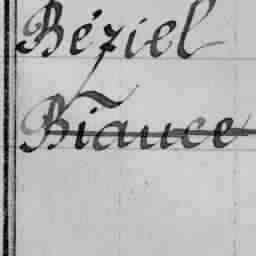 Béziel
Biauce